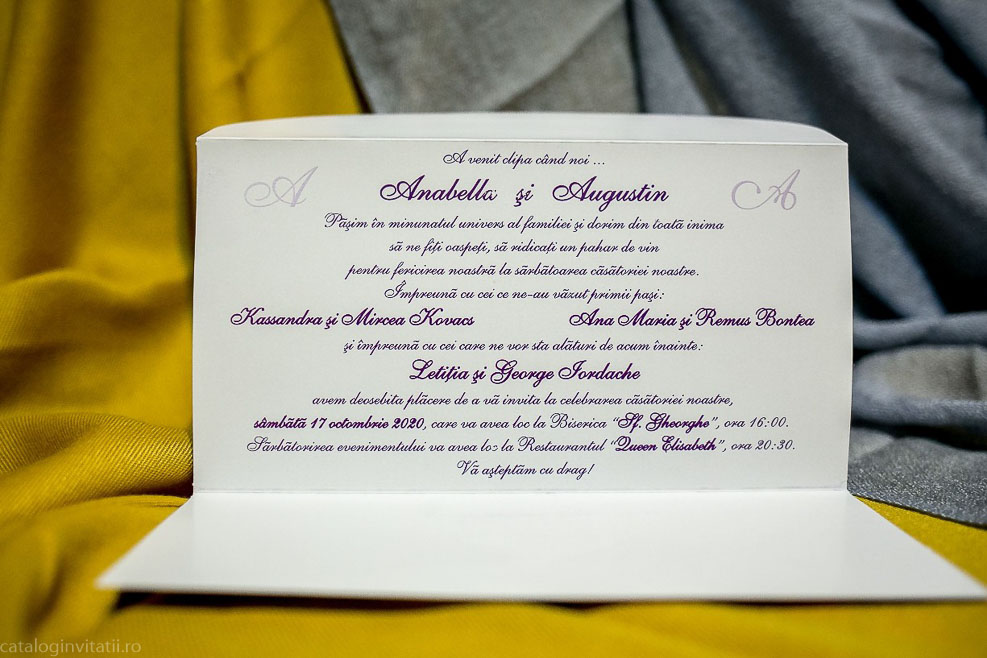 A venit clipa când noi ...
A
Anabella şi Augustin
A
Păşim în minunatul univers al familiei şi dorim din toată inima
să ne fiţi oaspeţi, să ridicaţi un pahar de vin
pentru fericirea noastră la sărbătoarea căsătoriei noastre.
Împreună cu cei ce ne-au văzut primii paşi:
Kassandra şi Mircea Kovacs
Ana Maria şi Remus Bontea
şi împreună cu cei care ne vor sta alături de acum înainte:
Letiţia şi George Iordache
avem deosebita plăcere de a vă invita la celebrarea căsătoriei noastre,
sâmbătă 17 octombrie 2020, care va avea loc la Biserica "Sf. Gheorghe", ora 16:00.
Sărbătorirea evenimentului va avea loc la Restaurantul "Queen Elisabeth", ora 20:30.
Vă aşteptăm cu drag!
cataloginvitatii.ro